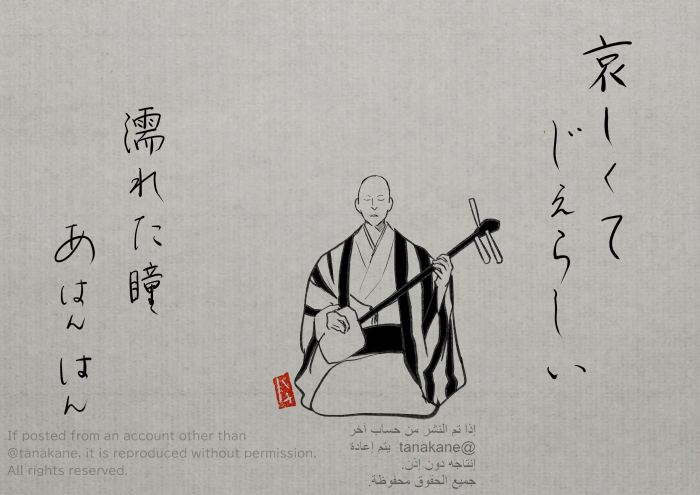 哀しくて
じぇらしい
濡れた瞳
あはんはん
If posted from an account other than
@tanakane, it is reproduced without permission.
All rights reserved.
إذا تم النشر من حساب آخر
@tanakane يتم إعادة
إنتاجه دون إذن.
جميع الحقوق محفوظة.